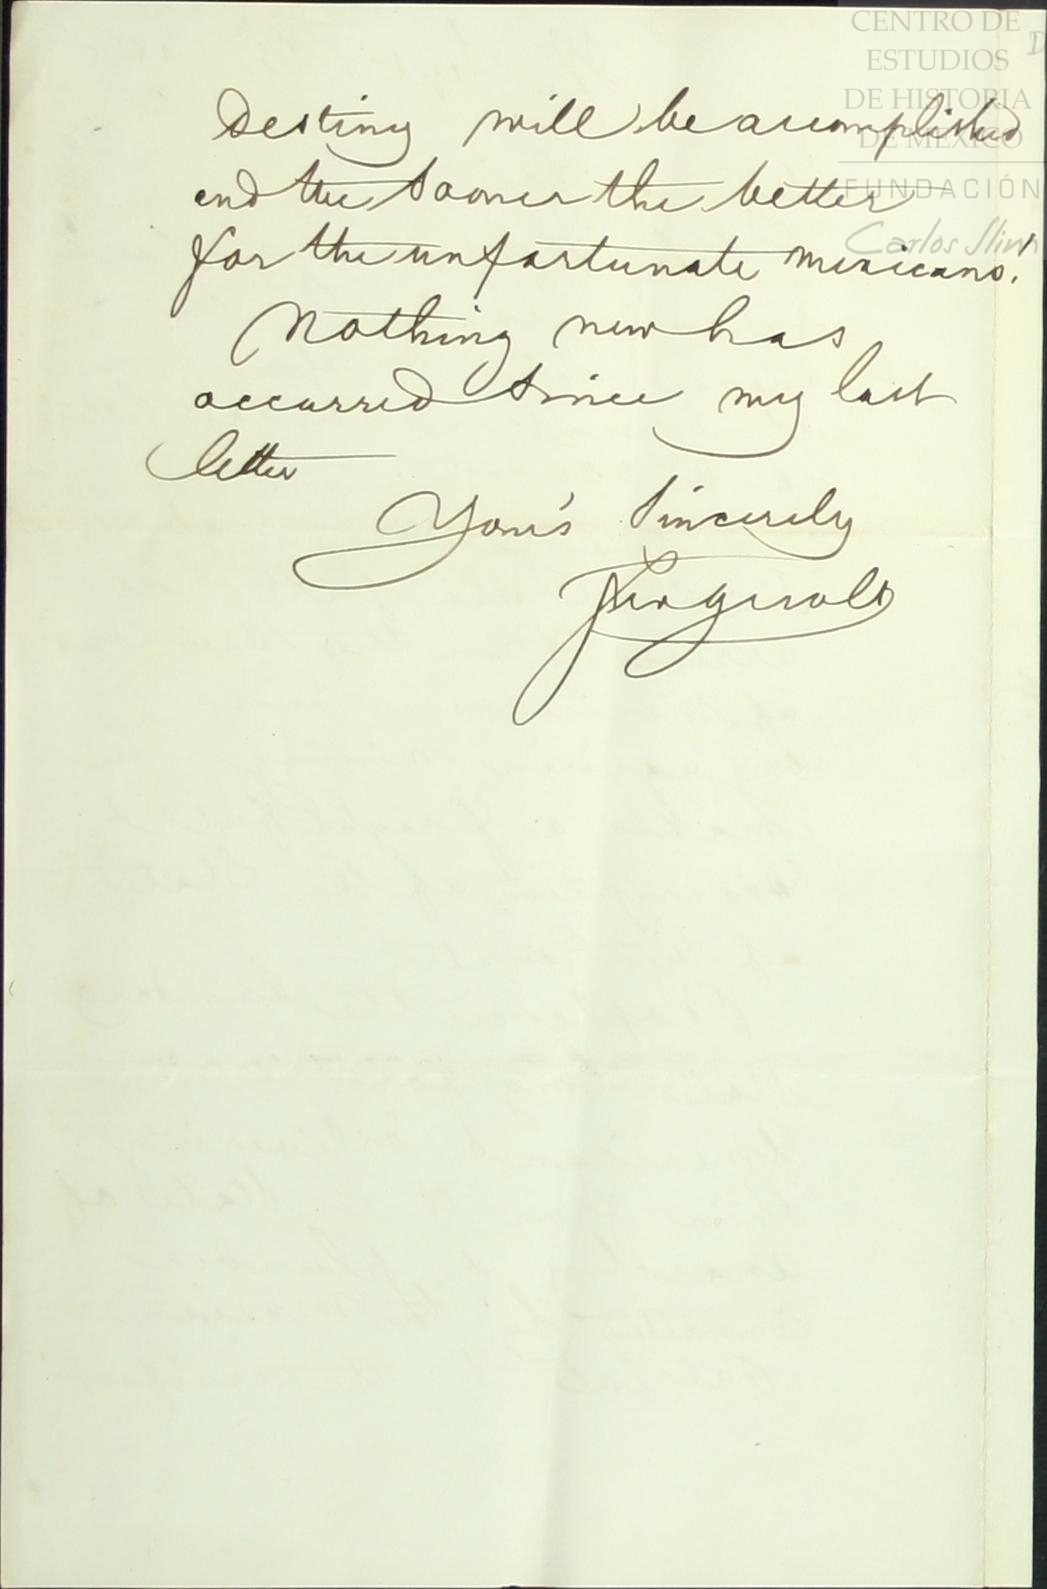 CENTRO DE
ESTUDIOS
DE HISTORIA
DE MÉXICO
FUNDACIÓN
Carlos Slim
Destiny will be accomplished
and the sooner the better
for the unfortunate mexicans.
Nothing new has
occurred since my last
letter
Your's Sincerely